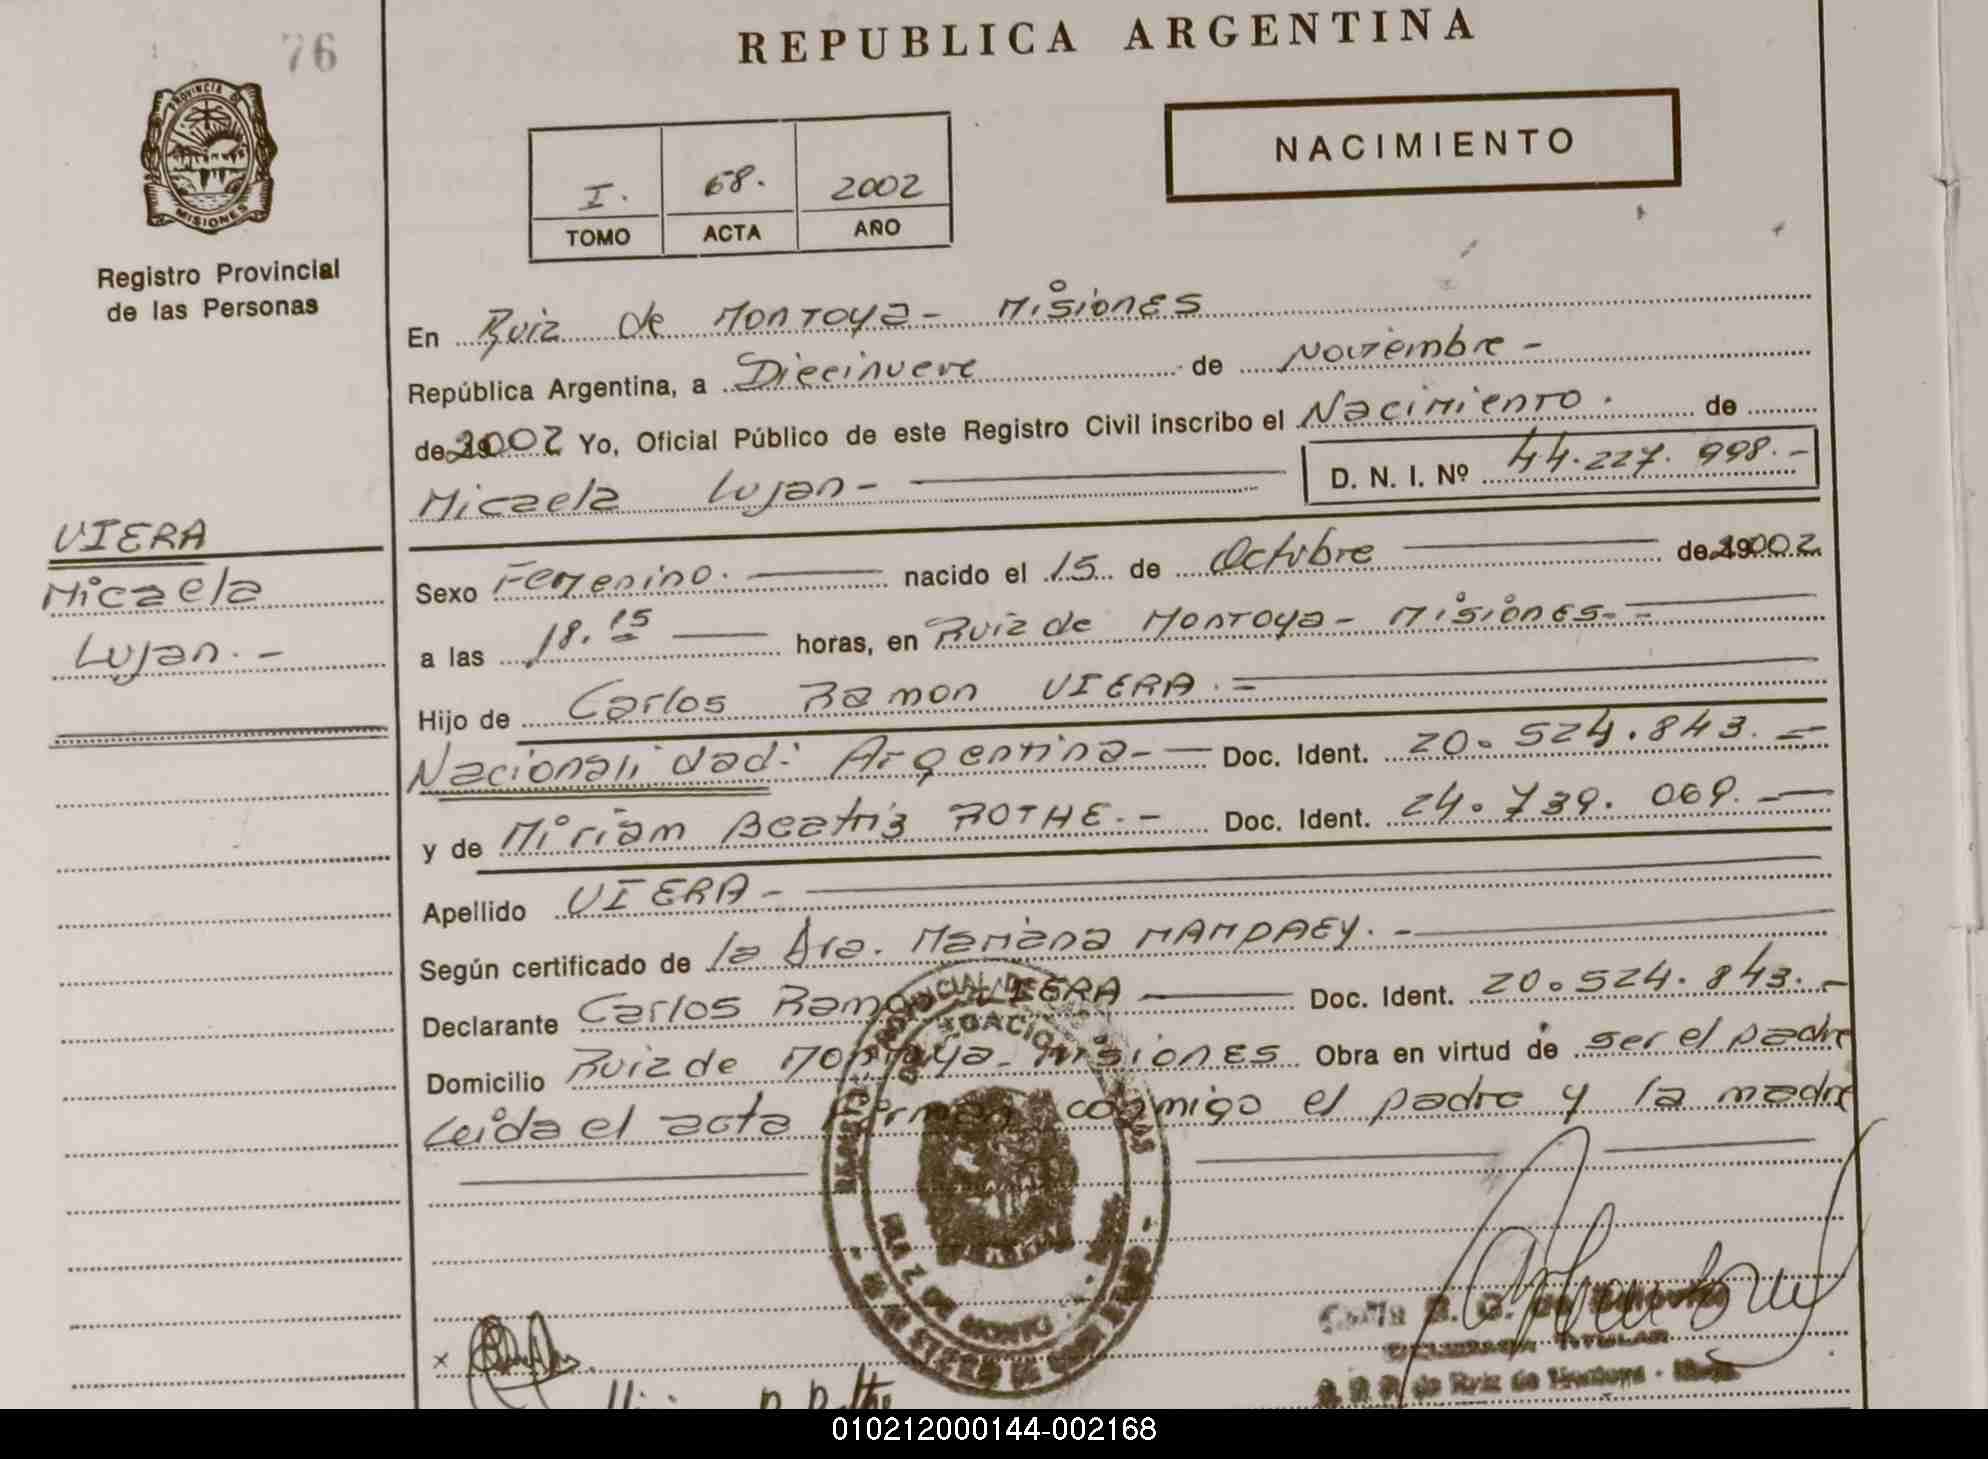 76
REPUBLICA ARGENTINA
PROVINCIA DE
MISIONES
Registro Provincial
de las Personas
NACIMIENTO
I. 68. 2002
TOMO ACTA AÑO
En Ruiz de Montoya - Misiones
República Argentina, a Diecinueve de Noviembre -
de 2002 Yo, Oficial Público de este Registro Civil inscribo el Nacimiento. de
Micaela Lujan - D. N. I. Nº 44.227.998.-
VIERA
Micaela
Lujan. -
Sexo Femenino. nacido el 15 de Octubre de 2002
a las 18.15 horas, en Ruiz de Montoya - Misiones. -
Hijo de Carlos Ramon VIERA. =
Nacionalidad: Argentina - Doc. Ident. 20.524.843. =
y de Miriam Beatriz ROTHE. - Doc. Ident. 24.739.069. -
Apellido VIERA -
Según certificado de la Dra. Mariana MAMDAEY. -
Declarante Carlos Ramon VIERA Doc. Ident. 20.524.843. -
Domicilio Ruiz de Montoya - Misiones Obra en virtud de ser el padre
Leida el acta firman conmigo el padre y la madre
x
DELEGADA TITULAR
de Ruiz de Montoya -
010212000144-002168